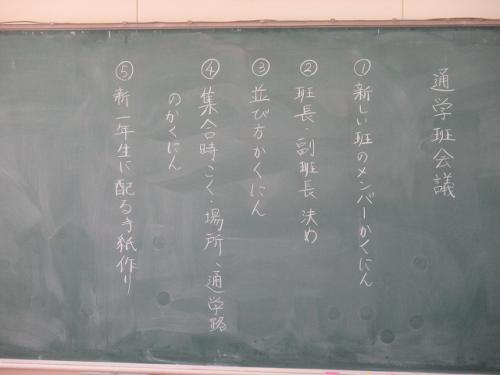 通学班会議
①新しい班のメンバーかくにん
②班長・副班長決め
③並び方かくにん
④集合時こく・場所、通学路
のかくにん
⑤新一年生に配る手紙作り